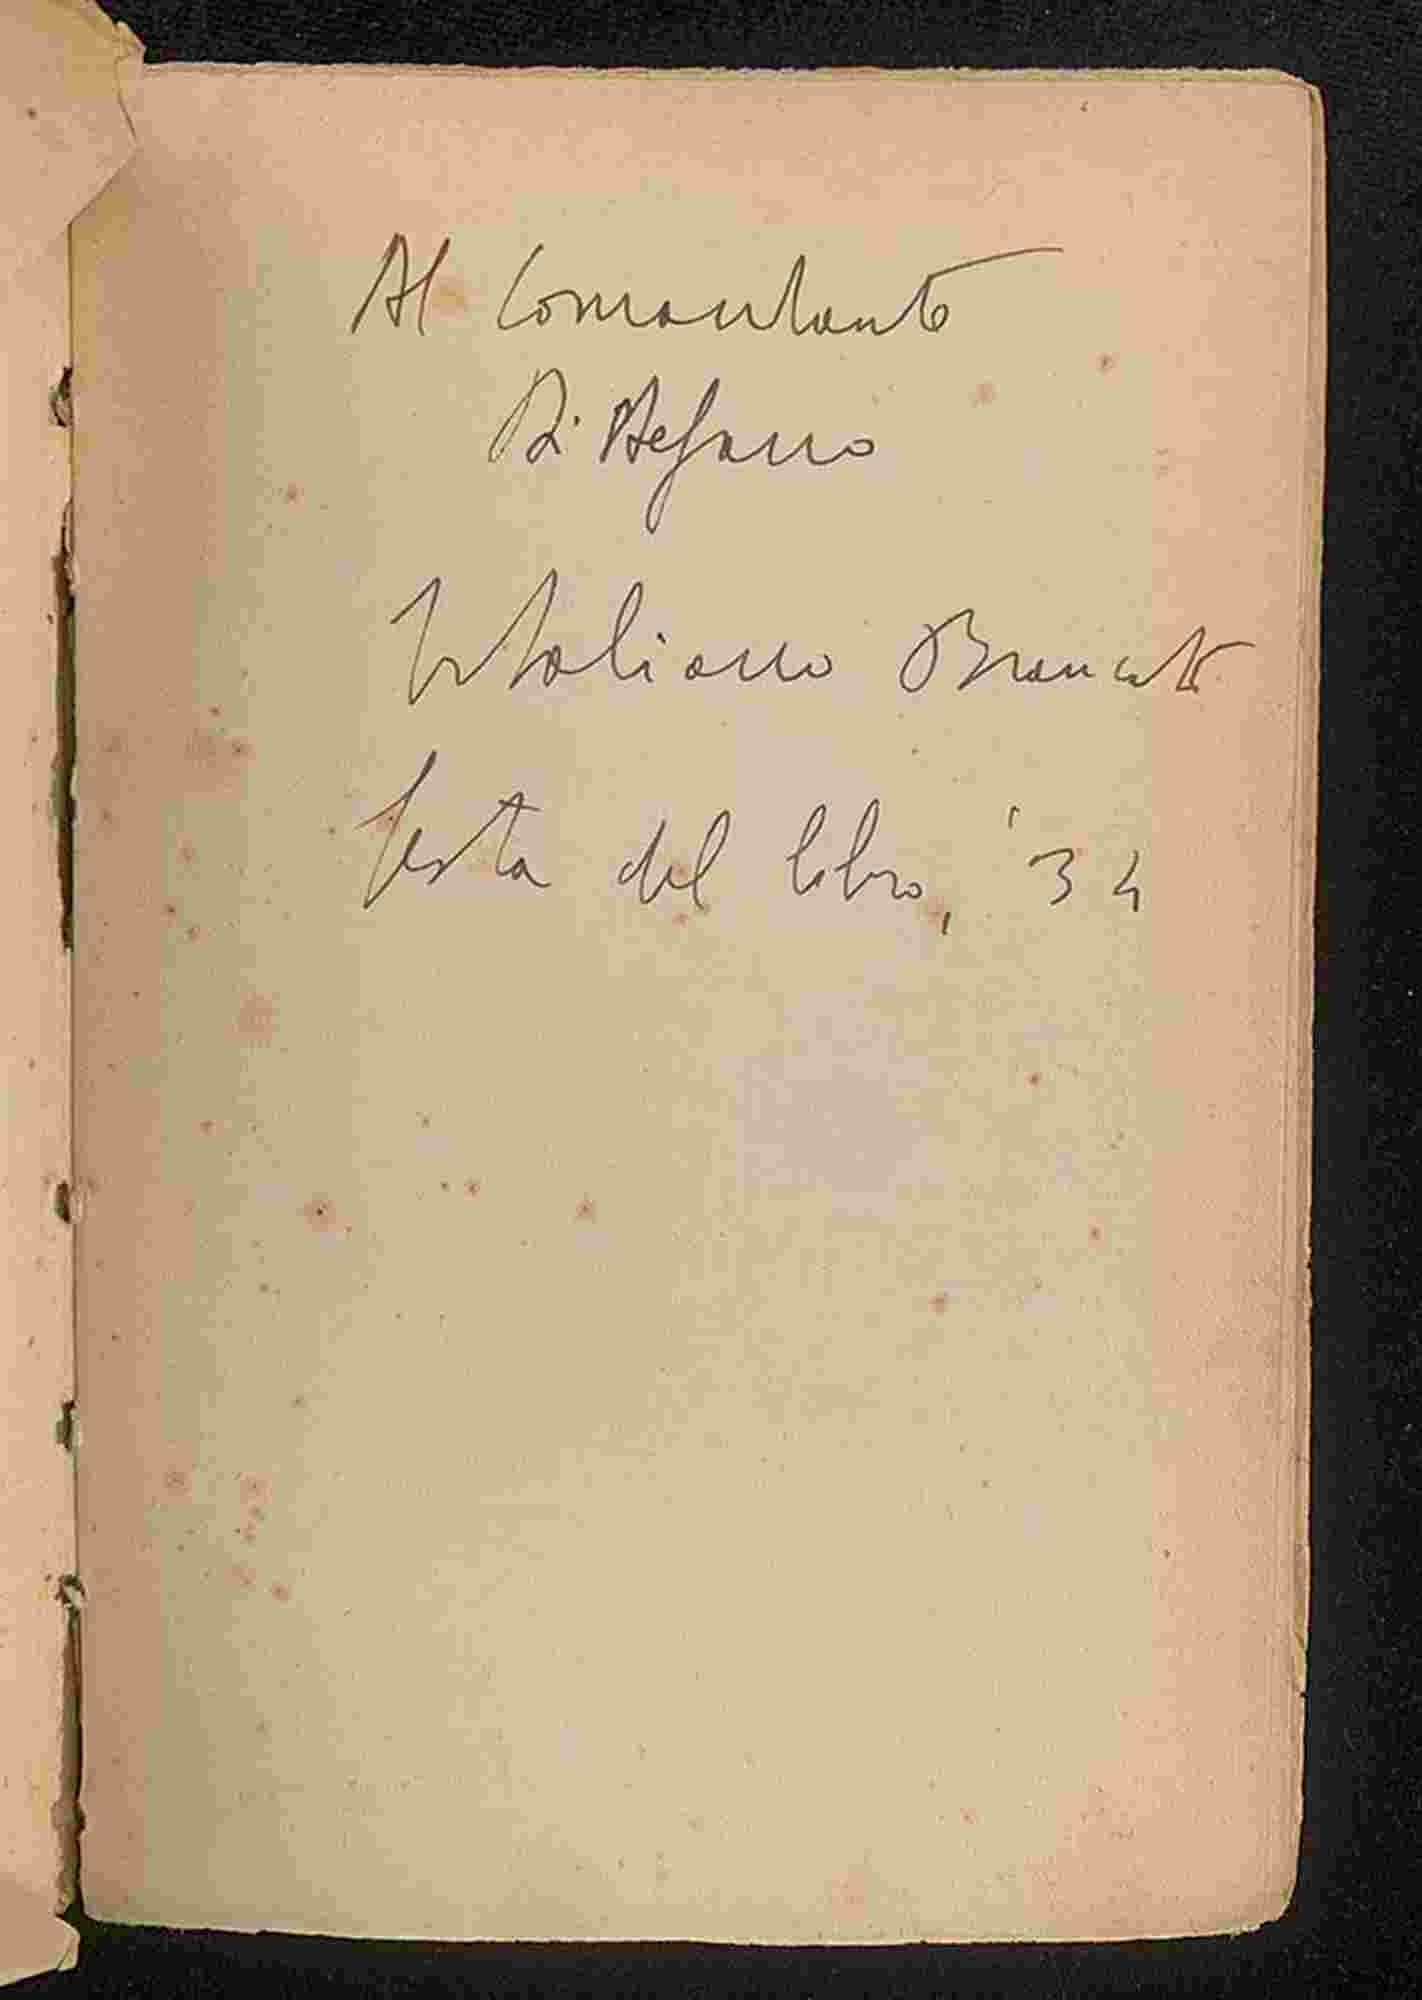 Al Comandante
Di Stefano
Vitaliano Brancati
festa del libro, '34